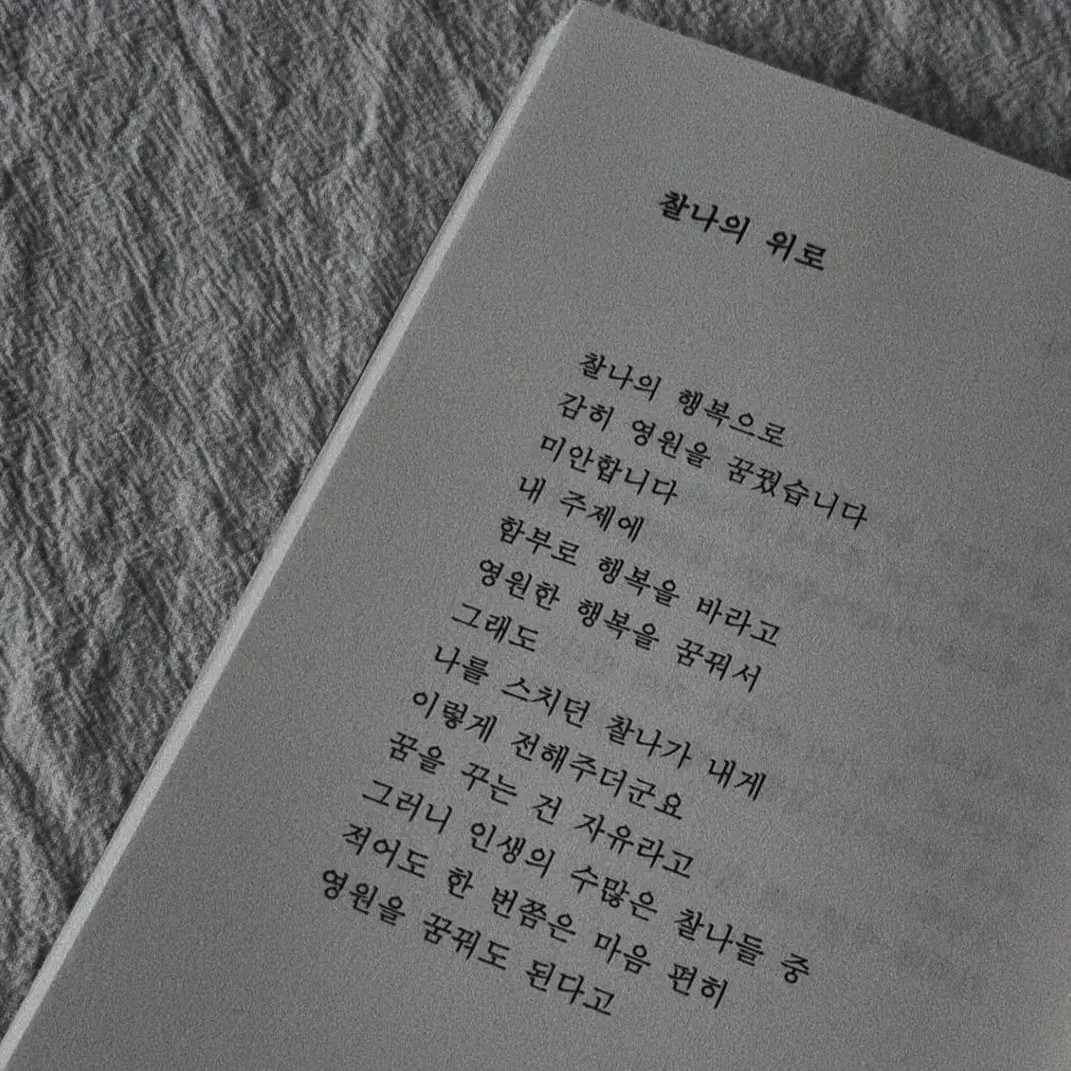 찰나의 위로
찰나의 행복으로
감히 영원을 꿈꿨습니다
미안합니다
내 주제에
함부로 행복을 바라고
영원한 행복을 꿈꿔서
그래도
나를 스치던 찰나가 내게
이렇게 전해주더군요
꿈을 꾸는 건 자유라고
그러니 인생의 수많은 찰나들 중
적어도 한 번쯤은 마음 편히
영원을 꿈꿔도 된다고